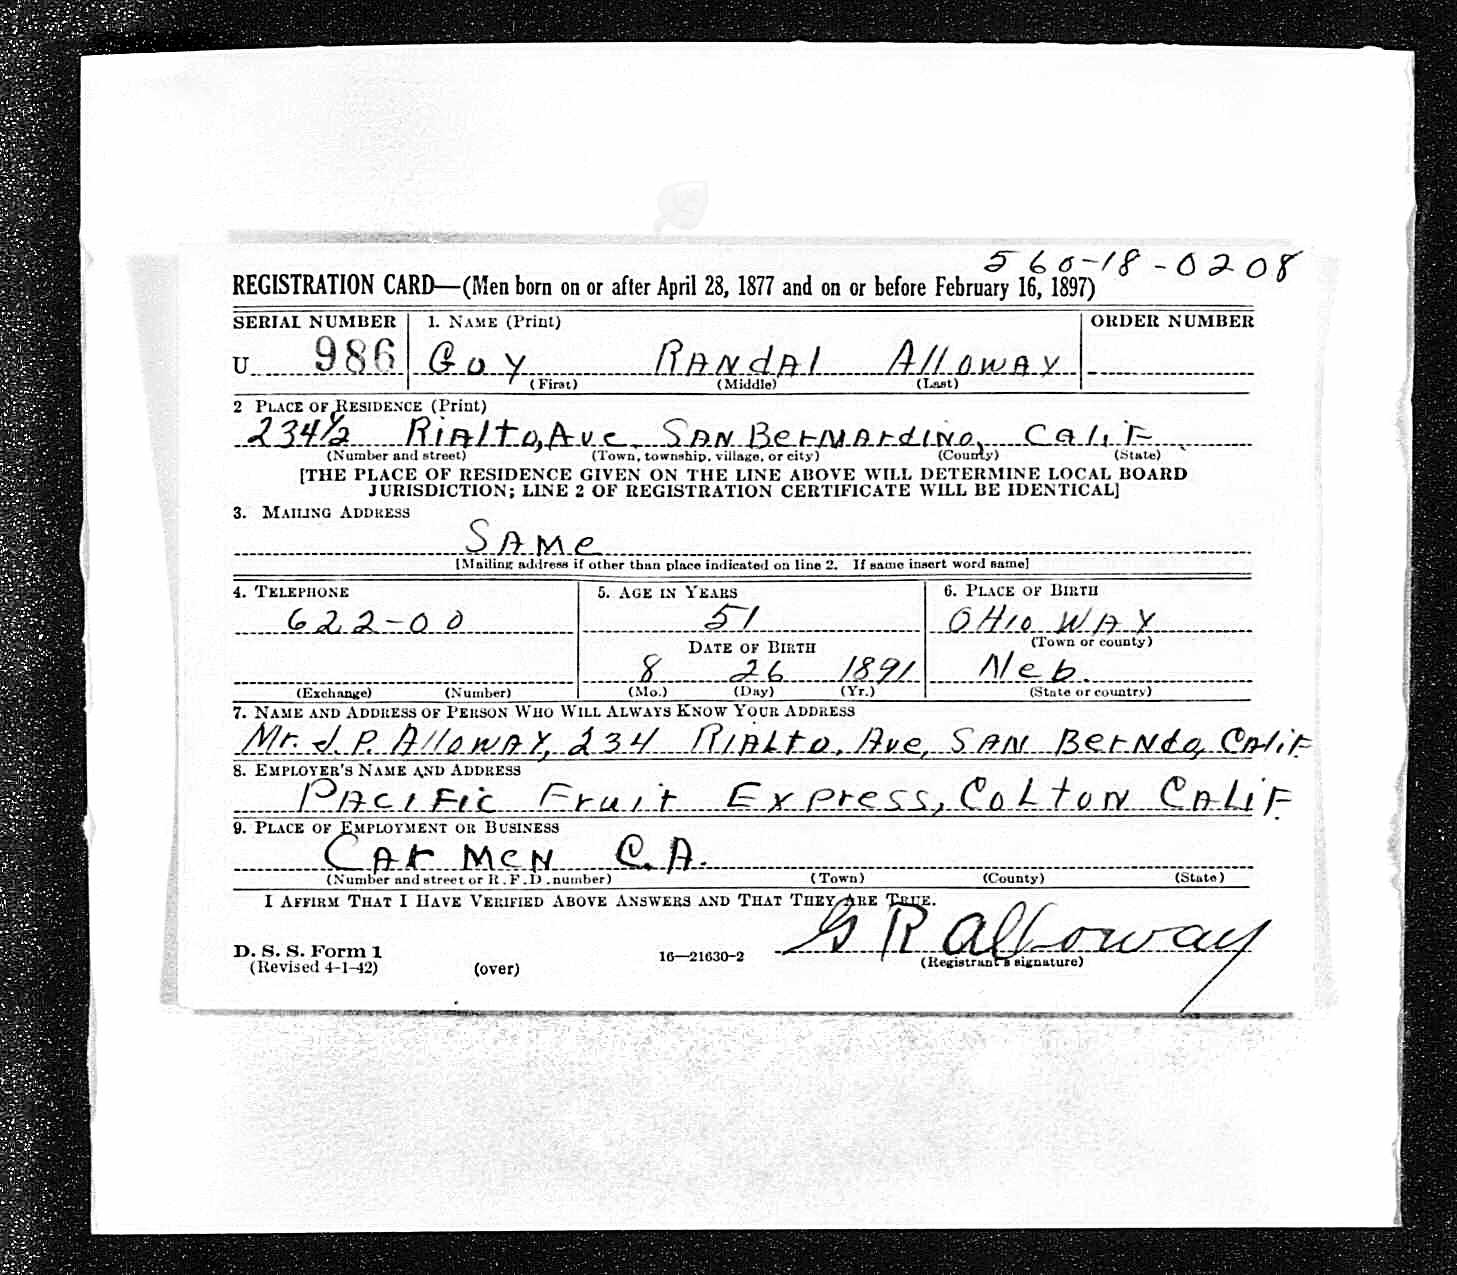 560-18-0208
REGISTRATION CARD—(Men born on or after April 28, 1877 and on or before February 16, 1897)
SERIAL NUMBER 1. NAME (Print) ORDER NUMBER
U 986 Guy RANdAl AllowAy
(First) (Middle) (Last)
2 PLACE OF RESIDENCE (Print)
234½ RiAlto, Ave SAN BerNArdiNo, CaliF
(Number and street) (Town, township, village, or city) (County) (State)
[THE PLACE OF RESIDENCE GIVEN ON THE LINE ABOVE WILL DETERMINE LOCAL BOARD
JURISDICTION; LINE 2 OF REGISTRATION CERTIFICATE WILL BE IDENTICAL]
3. MAILING ADDRESS
SAMe
[Mailing address if other than place indicated on line 2. If same insert word same]
4. TELEPHONE 5. AGE IN YEARS 6. PLACE OF BIRTH
622-00 51 OHio WAY
DATE OF BIRTH (Town or county)
8 26 1891 Neb.
(Exchange) (Number) (Mo.) (Day) (Yr.) (State or country)
7. NAME AND ADDRESS OF PERSON WHO WILL ALWAYS KNOW YOUR ADDRESS
Mr. J. P. AllowAY, 234 RiALto. Ave, SAN BerNdo, CAliF
8. EMPLOYER'S NAME AND ADDRESS
PAciFic Fruit Express, COLtON CALiF.
9. PLACE OF EMPLOYMENT OR BUSINESS
CAr MeN C.A.
(Number and street or R. F. D. number) (Town) (County) (State)
I AFFIRM THAT I HAVE VERIFIED ABOVE ANSWERS AND THAT THEY ARE TRUE.
G R Alloway
D. S. S. Form 1
(Revised 4-1-42) (over) 16—21630-2 (Registrant's signature)